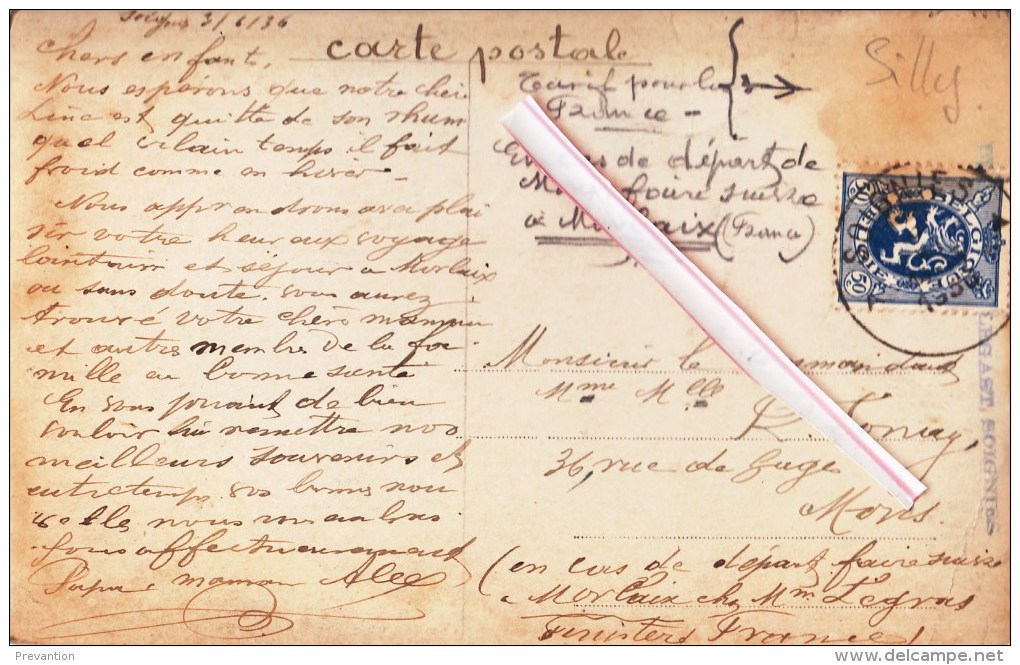 Soignies 3/6/36
chers enfant,
Nous espérons que notre cher
Line est quitte de son rhum
quel vilain temps il fait
froid comme en hiver -
Nous apprendrons avec plai
sir votre heureux voyage
lointain et séjour a Morlaix
ou sans doute vous aurez
trouvé votre chère maman
et autres membres de la fa-
mille en bonne santé
En vous priant de bien
vouloir lui remettre nos
meilleurs souvenirs et
entretemps vos bonnes nou
velles nous vous embras
sons affectueusement
Papa, maman Alex
carte postale
Tarif pour la
France -
En cas de départ de
faire suivre
a Morlaix (France)
Silly
BELGIQUE
BELGIE
50
1936
LEGAST SOIGNIES
Monsieur le Commandant
Mme Melle
36, rue de
Mons.
(en cas de départ faire suivre
a Morlaix chez Mme Legras
Finistère France)
Prevention